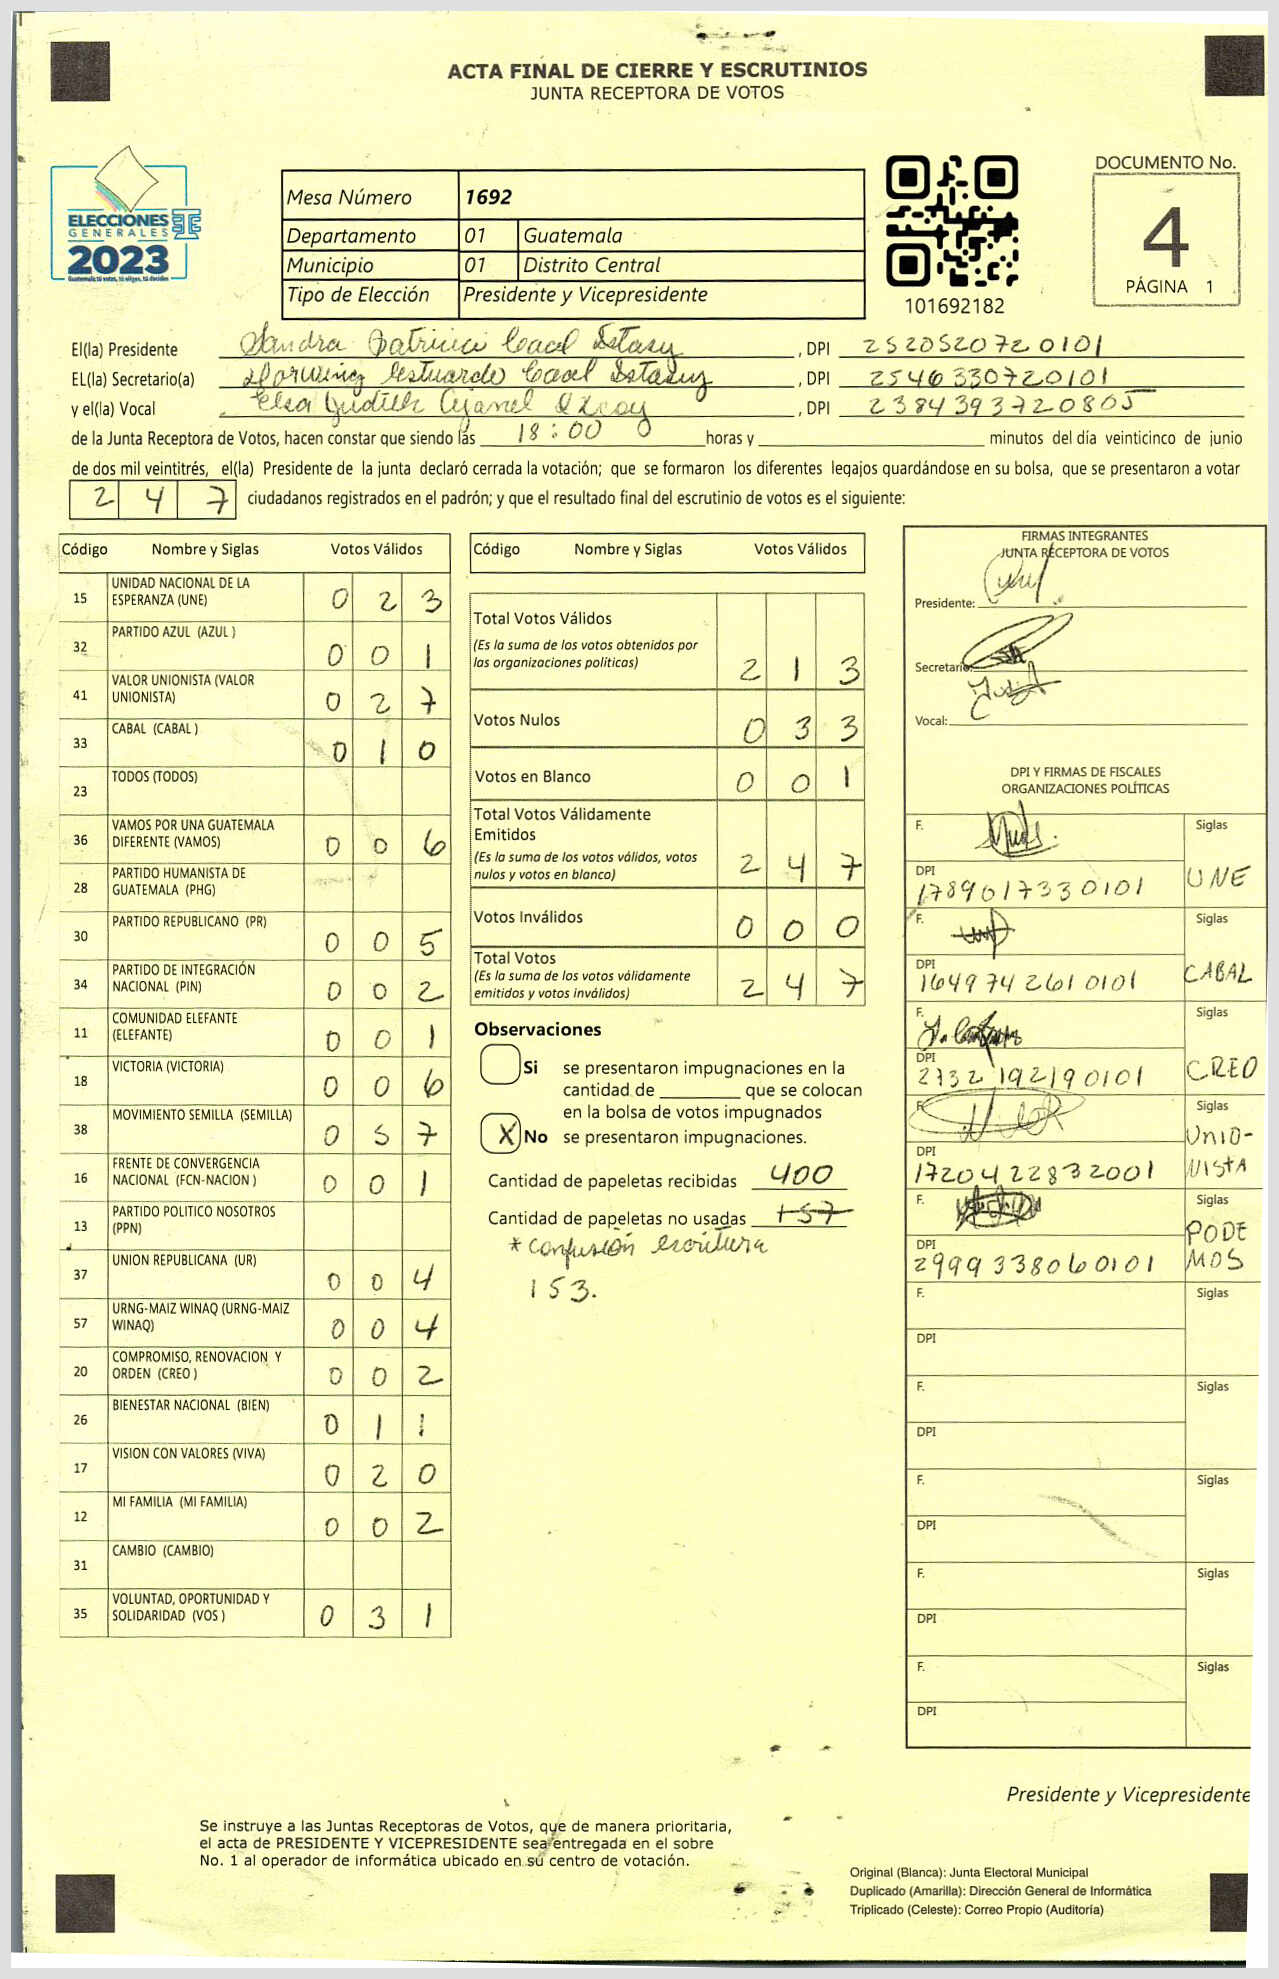 ACTA FINAL DE CIERRE Y ESCRUTINIOS
JUNTA RECEPTORA DE VOTOS
ELECCIONES
GENERALES
2023
Guatemala; tú votas, tú eliges, tú decides
Mesa Número 1692
Departamento 01 Guatemala
Municipio 01 Distrito Central
Tipo de Elección Presidente y Vicepresidente
101692182
DOCUMENTO No.
4
PÁGINA 1
El(la) Presidente Sandra Patricia Caal Istasy, DPI 2520520720101
EL(la) Secretario(a) Estuardo Caal, DPI 2546330720101
y el(la) Vocal Elsa Judith, DPI 2384393720805
de la Junta Receptora de Votos, hacen constar que siendo las 18:00 horas y minutos del día veinticinco de junio
de dos mil veintitrés, el(la) Presidente de la junta declaró cerrada la votación; que se formaron los diferentes legajos guardándose en su bolsa, que se presentaron a votar
2 4 7 ciudadanos registrados en el padrón; y que el resultado final del escrutinio de votos es el siguiente:
Código Nombre y Siglas Votos Válidos
15 UNIDAD NACIONAL DE LA ESPERANZA (UNE) 0 2 3
32 PARTIDO AZUL (AZUL ) 0 0 1
41 VALOR UNIONISTA (VALOR UNIONISTA) 0 2 7
33 CABAL (CABAL ) 0 1 0
23 TODOS (TODOS)
36 VAMOS POR UNA GUATEMALA DIFERENTE (VAMOS) 0 0 6
28 PARTIDO HUMANISTA DE GUATEMALA (PHG)
30 PARTIDO REPUBLICANO (PR) 0 0 5
34 PARTIDO DE INTEGRACIÓN NACIONAL (PIN) 0 0 2
11 COMUNIDAD ELEFANTE (ELEFANTE) 0 0 1
18 VICTORIA (VICTORIA) 0 0 6
38 MOVIMIENTO SEMILLA (SEMILLA) 0 5 7
16 FRENTE DE CONVERGENCIA NACIONAL (FCN-NACION ) 0 0 1
13 PARTIDO POLITICO NOSOTROS (PPN)
37 UNION REPUBLICANA (UR) 0 0 4
57 URNG-MAIZ WINAQ (URNG-MAIZ WINAQ) 0 0 4
20 COMPROMISO, RENOVACION Y ORDEN (CREO ) 0 0 2
26 BIENESTAR NACIONAL (BIEN) 0 1 1
17 VISION CON VALORES (VIVA) 0 2 0
12 MI FAMILIA (MI FAMILIA) 0 0 2
31 CAMBIO (CAMBIO)
35 VOLUNTAD, OPORTUNIDAD Y SOLIDARIDAD (VOS ) 0 3 1
Código Nombre y Siglas Votos Válidos
Total Votos Válidos
(Es la suma de los votos obtenidos por
las organizaciones políticas) 2 1 3
Votos Nulos 0 3 3
Votos en Blanco 0 0 1
Total Votos Válidamente
Emitidos
(Es la suma de los votos válidos, votos
nulos y votos en blanco) 2 4 7
Votos Inválidos 0 0 0
Total Votos
(Es la suma de los votos válidamente
emitidos y votos inválidos) 2 4 7
Observaciones
Si se presentaron impugnaciones en la
cantidad de que se colocan
en la bolsa de votos impugnados
X No se presentaron impugnaciones.
Cantidad de papeletas recibidas 400
Cantidad de papeletas no usadas 157
* confusión escritura
153.
FIRMAS INTEGRANTES
JUNTA RECEPTORA DE VOTOS
Presidente:
Secretario:
Vocal:
DPI Y FIRMAS DE FISCALES
ORGANIZACIONES POLÍTICAS
F. Siglas
DPI 1789017330101 UNE
F. Siglas
DPI 1649742610101 CABAL
F. Siglas
DPI 2732192190101 CREO
F. Siglas
DPI 1720422832001 UNIO-
NISTA
F. Siglas
DPI 2999338060101 PODE
MOS
F. Siglas
DPI
F. Siglas
DPI
F. Siglas
DPI
F. Siglas
DPI
F. Siglas
DPI
Presidente y Vicepresidente
Se instruye a las Juntas Receptoras de Votos, que de manera prioritaria,
el acta de PRESIDENTE Y VICEPRESIDENTE sea entregada en el sobre
No. 1 al operador de informática ubicado en su centro de votación.
Original (Blanca): Junta Electoral Municipal
Duplicado (Amarilla): Dirección General de Informática
Triplicado (Celeste): Correo Propio (Auditoría)